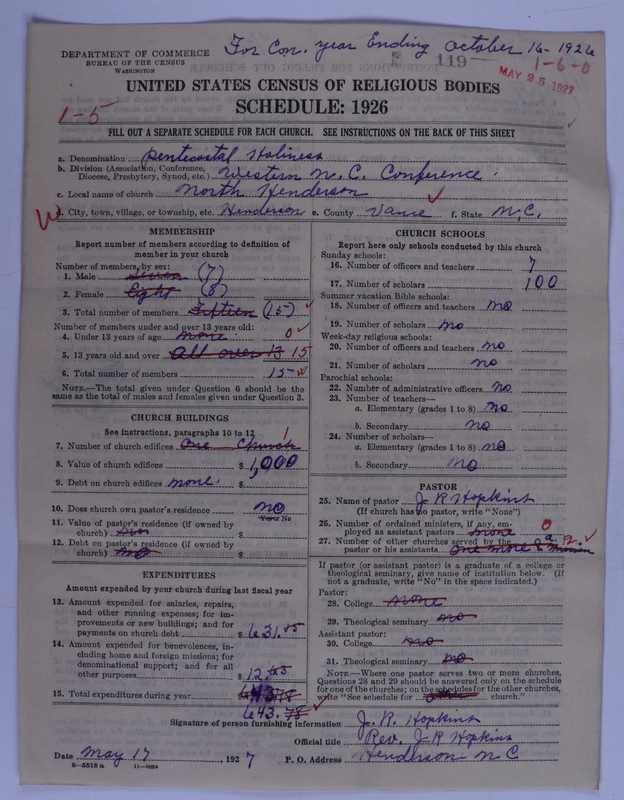 For Con. year Ending October 16-1926
DEPARTMENT OF COMMERCE
BUREAU OF THE CENSUS
WASHINGTON
119
1-6-0
MAY 25 1927
UNITED STATES CENSUS OF RELIGIOUS BODIES
SCHEDULE: 1926
1-5
FILL OUT A SEPARATE SCHEDULE FOR EACH CHURCH. SEE INSTRUCTIONS ON THE BACK OF THIS SHEET
a. Denomination Pentecostal Holiness
b. Division (Association, Conference, Diocese, Presbytery, Synod, etc.) Western N.C. Conference
c. Local name of church North Henderson
d. City, town, village, or township, etc. Henderson e. County Vance f. State N.C.
MEMBERSHIP
Report number of members according to definition of
member in your church
Number of members, by sex:
1. Male Seven (7)
2. Female Eight (8)
3. Total number of members Fifteen (15)
Number of members under and over 13 years old:
4. Under 13 years of age none 0
5. 13 years old and over All over 13 15
6. Total number of members 15
NOTE.—The total given under Question 6 should be the
same as the total of males and females given under Question 3.
CHURCH BUILDINGS
See instructions, paragraphs 10 to 12
7. Number of church edifices One Church 1
8. Value of church edifices $ 1,000
9. Debt on church edifices none $
10. Does church own pastor's residence no
Yes or No
11. Value of pastor's residence (if owned by
church) no $
12. Debt on pastor's residence (if owned by
church) no $
EXPENDITURES
Amount expended by your church during last fiscal year
13. Amount expended for salaries, repairs,
and other running expenses; for im-
provements or new buildings; and for
payments on church debt $ 631.
14. Amount expended for benevolences, in-
cluding home and foreign missions; for
denominational support; and for all
other purposes $ 12.
15. Total expenditures during year
643.78
CHURCH SCHOOLS
Report here only schools conducted by this church
Sunday schools:
16. Number of officers and teachers 7
17. Number of scholars 100
Summer vacation Bible schools:
18. Number of officers and teachers no
19. Number of scholars no
Week-day religious schools:
20. Number of officers and teachers no
21. Number of scholars no
Parochial schools:
22. Number of administrative officers no
23. Number of teachers—
a. Elementary (grades 1 to 8) no
b. Secondary no
24. Number of scholars—
a. Elementary (grades 1 to 8) no
b. Secondary no
PASTOR
25. Name of pastor J. R Hopkins
(If church has no pastor, write "None")
26. Number of ordained ministers, if any, em-
ployed as assistant pastors none 0
27. Number of other churches served by the
pastor or his assistants One more & a mission 2
If pastor (or assistant pastor) is a graduate of a college or
theological seminary, give name of institution below. (If
not a graduate, write "No" in the space indicated.)
Pastor:
28. College none
29. Theological seminary no
Assistant pastor:
30. College no
31. Theological seminary no
NOTE.—Where one pastor serves two or more churches,
Questions 28 and 29 should be answered only on the schedule
for one of the churches; on the schedules for the other churches,
write "See schedule for church."
Signature of person furnishing information J. R. Hopkins
Official title Rev. J R Hopkins
Date May 17, 1927 P. O. Address Henderson N C
8-5316a 11-9034